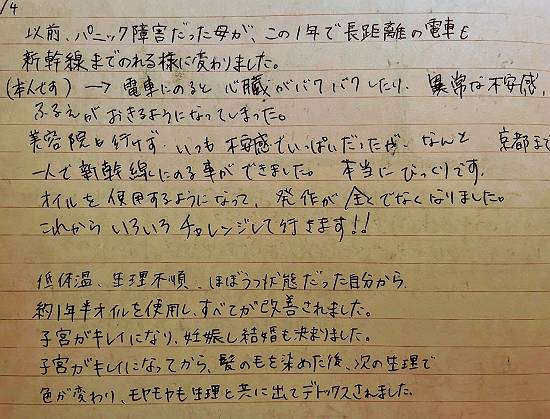 1/4
以前、パニック障害だった母が、この1年で長距離の電車も
新幹線までのれる様に変わりました。
(本人です) → 電車にのると 心臓がバクバクしたり、異常な不安感、
ふるえがおきるようになってしまった。
美容院も行けず、いつも不安感でいっぱいだったが、なんと 京都まで
一人で新幹線にのる事ができました。 本当にびっくりです。
オイルを使用するようになって、発作が全くでなくなりました。
これからいろいろチャレンジして行きます!!
低体温、生理不順、ほぼうつ状態だった自分から
約1年半オイルを使用し、すべてが改善されました。
子宮がキレイになり、妊娠し結婚も決まりました。
子宮がキレイになってから、髪の毛を染めた後、次の生理で
色が変わり、モヤモヤも生理と共に出てデトックスされました。